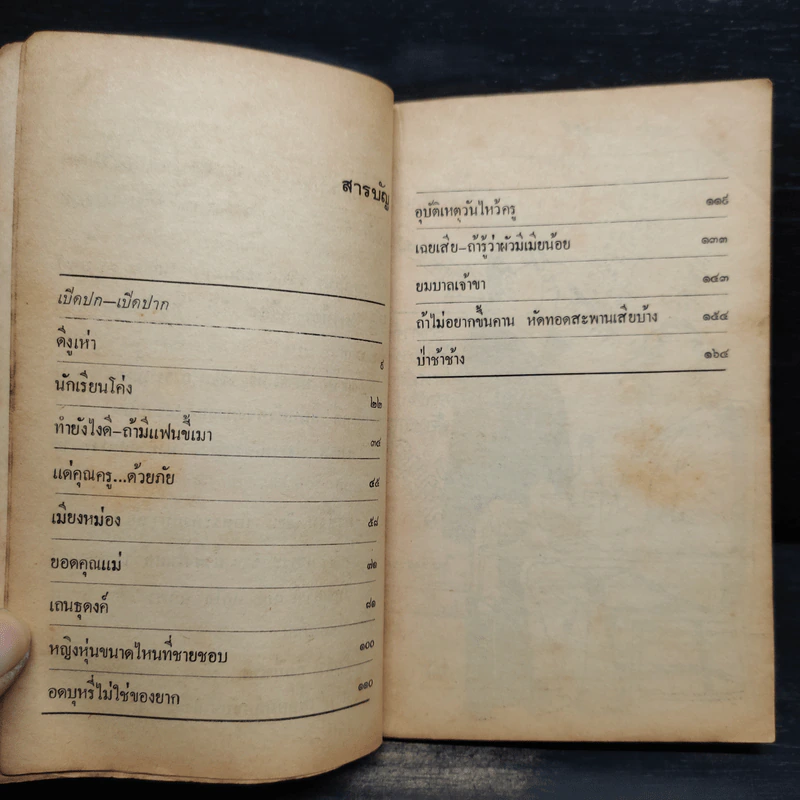 สารบัญ
เปิดปก—เปิดปาก
ดีงูเห่า ๙
นักเรียนโค่ง ๒๒
ทำยังไงดี–ถ้ามีแฟนขี้เมา ๓๔
แด่คุณครู...ด้วยภัย ๔๕
เมียงหม่อง ๕๘
ยอดคุณแม่ ๗๑
เถนธุดงค์ ๘๑
หญิงหุ่นขนาดไหนที่ชายชอบ ๑๐๐
อดบุหรี่ไม่ใช่ของยาก ๑๑๐
อุบัติเหตุวันไหว้ครู ๑๑๙
เฉยเสีย–ถ้ารู้ว่าผัวมีเมียน้อย ๑๓๓
ยมบาลเจ้าขา ๑๔๓
ถ้าไม่อยากขึ้นคาน หัดทอดสะพานเสียบ้าง ๑๕๔
ป่าช้าช้าง ๑๖๔